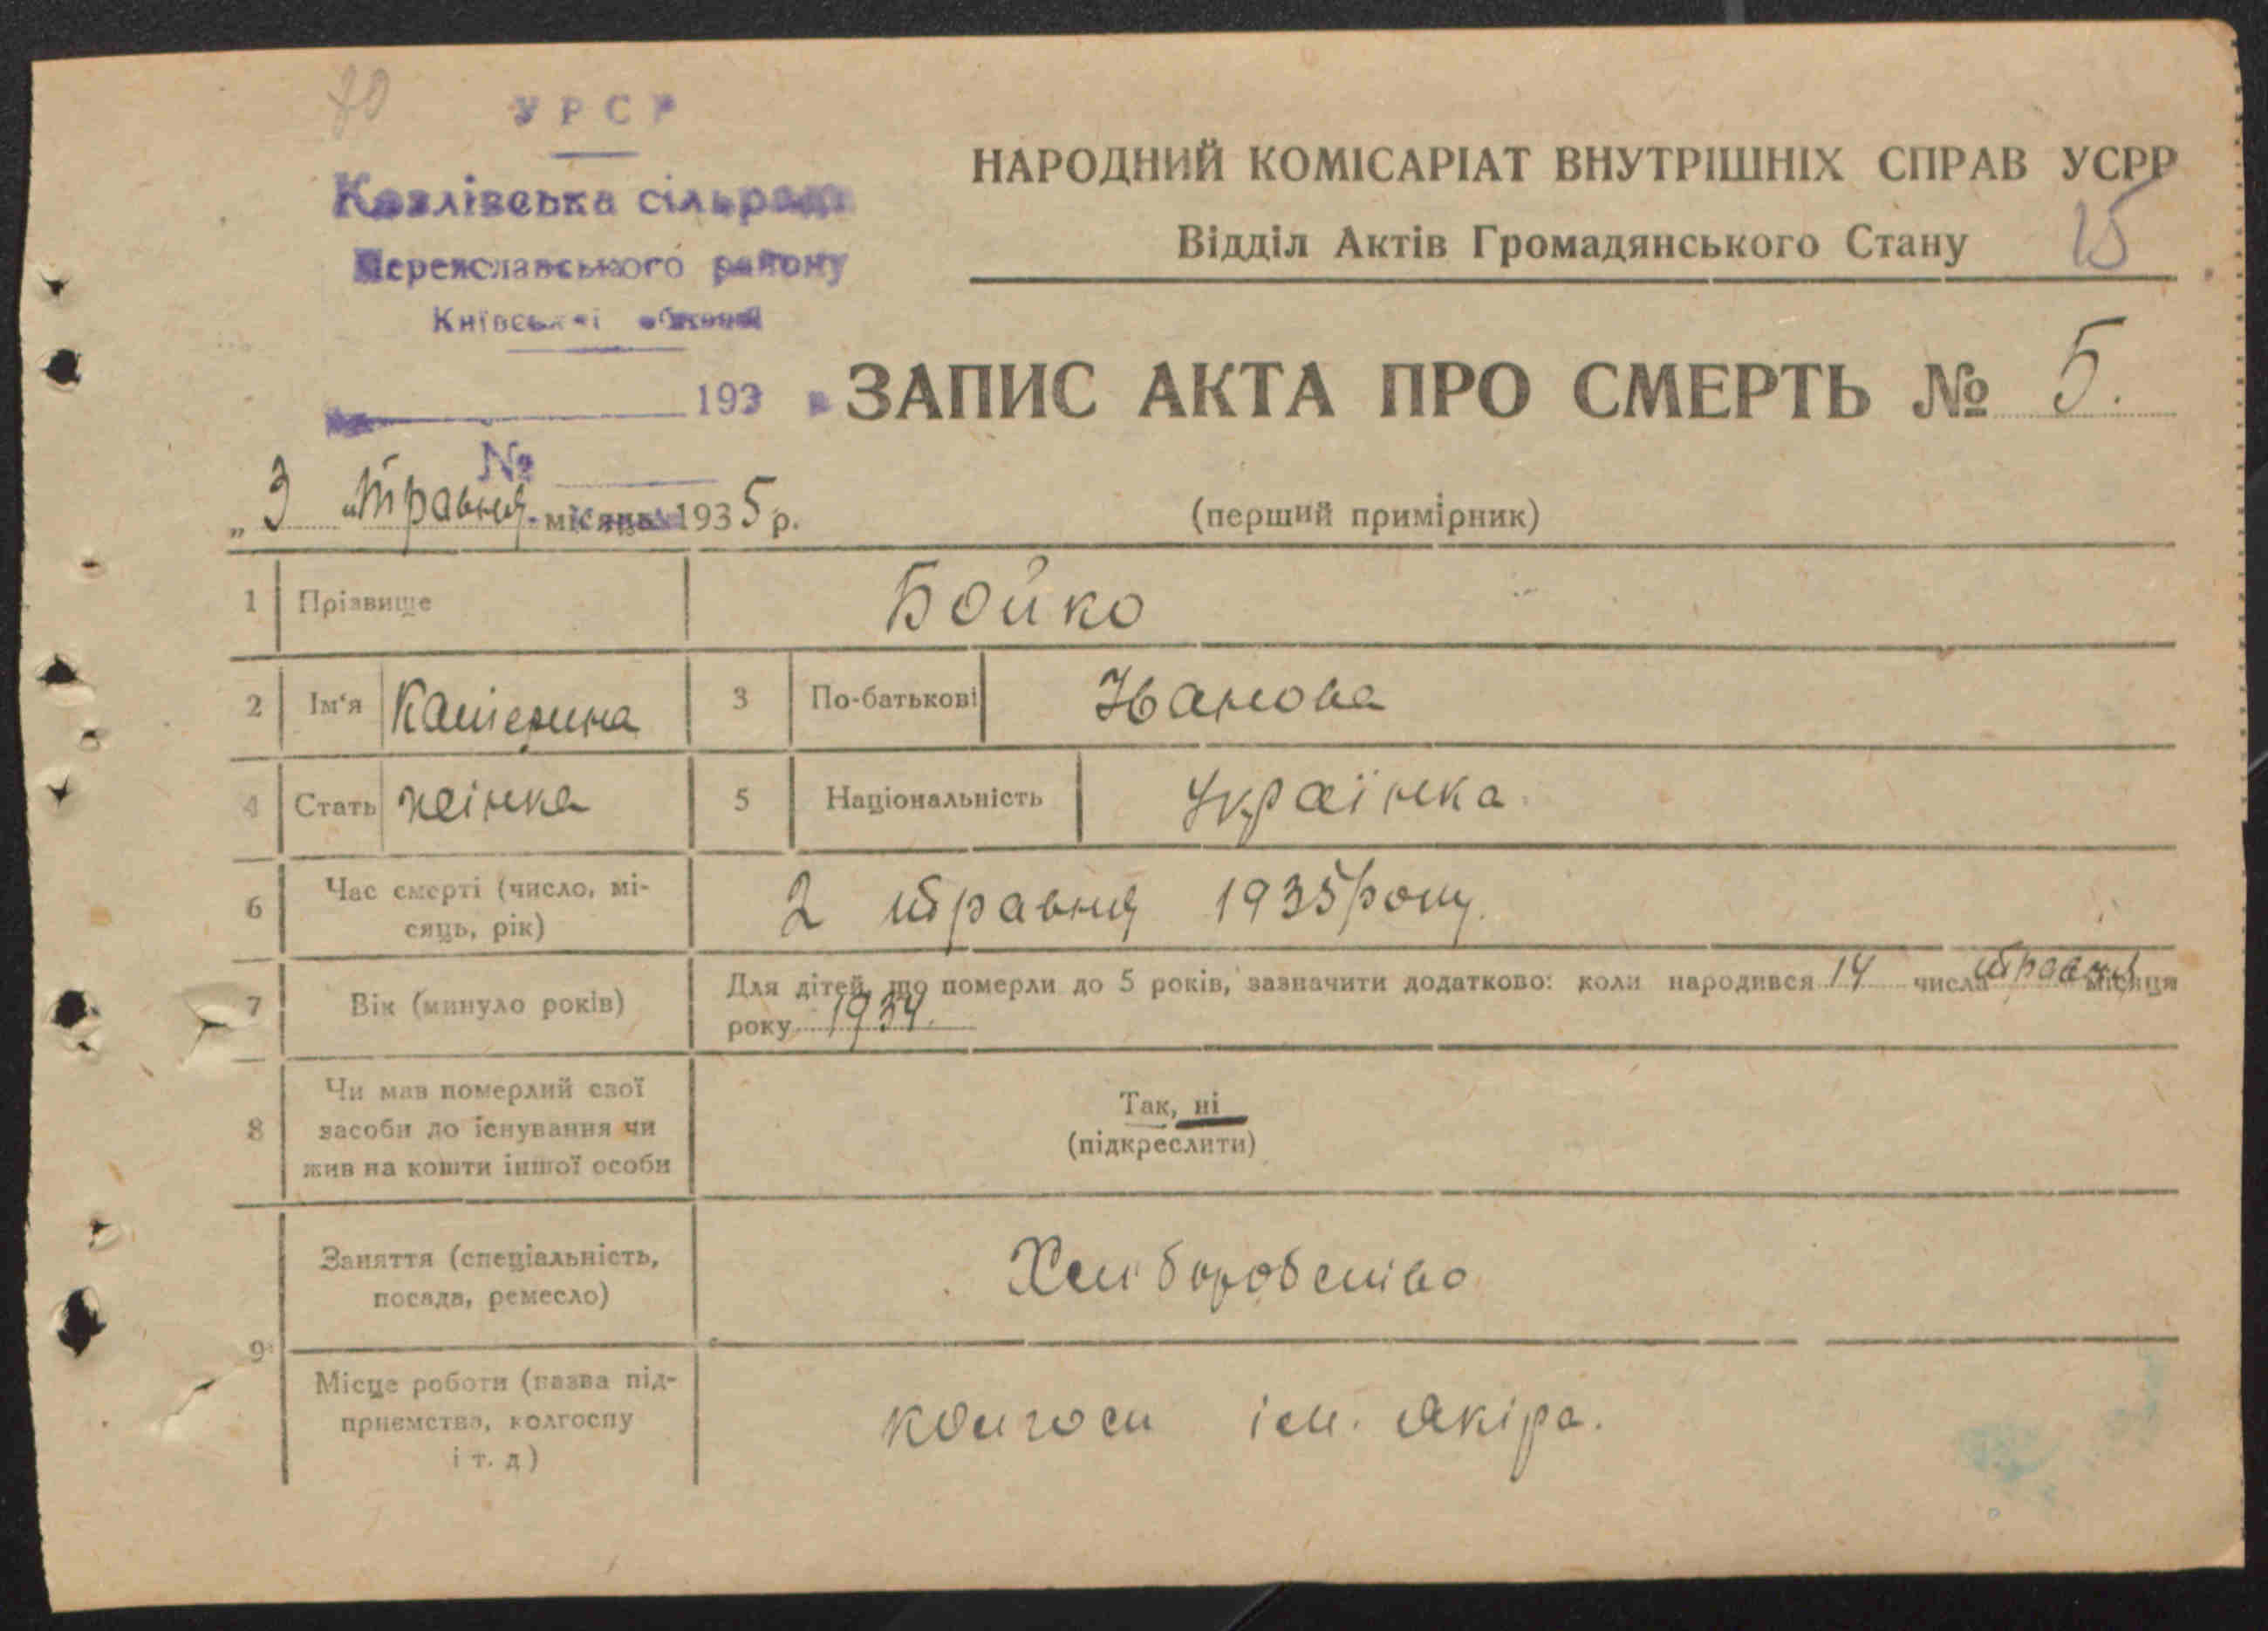 70
УРСР
Козлівська сільрада
НАРОДНИЙ КОМІСАРІАТ ВНУТРІШНІХ СПРАВ УСРР
Переяславського району
Відділ Актів Громадянського Стану 15
Київської області
193 р
ЗАПИС АКТА ПРО СМЕРТЬ № 5.
№
„3" травня місяця 1935 р.
(перший примірник)
1 Прізвище Бойко
2 Ім'я Катерина 3 По-батькові Іванова
4 Стать жінка 5 Національність Українка.
6 Час смерті (число, мі-
сяць, рік)
2 травня 1935 року.
7 Вік (минуло років)
Для дітей, що померли до 5 років, зазначити додатково: коли народився 14 числа травня місяця
року 1934.
8 Чи мав померлий свої
засоби до існування чи
жив на кошти іншої особи
Так, ні
(підкреслити)
9 Заняття (спеціальність,
посада, ремесло)
Хліборобство
Місце роботи (назва під-
приємства, колгоспу
і т. д)
колгосп ім. Якіра.